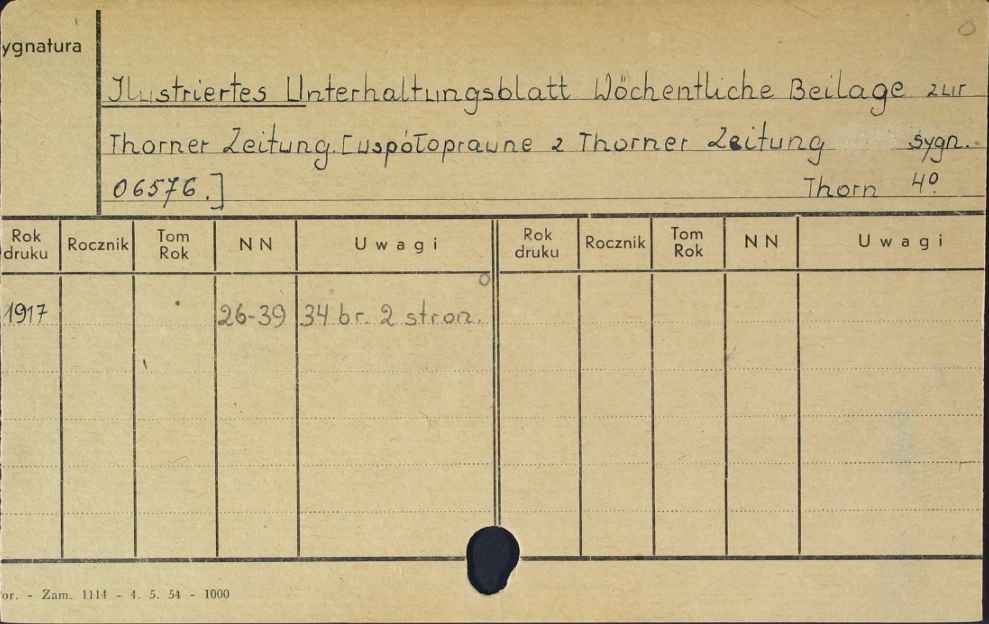 ygnatura
Jlustriertes Unterhaltungsblatt Wöchentliche Beilage zur
Thorner Zeitung. [współoprawne z Thorner Zeitung sygn.
06576.] Thorn 4º
Rok druku Rocznik Tom Rok N N U w a g i Rok druku Rocznik Tom Rok N N U w a g i
1917 26-39 34 br. 2 stron.
or. - Zam. 1114 - 4. 5. 54 - 1000